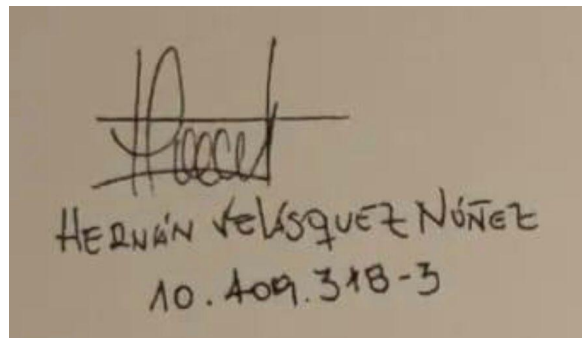 HERNÁN VELÁSQUEZ NÚÑEZ
10.409.318-3